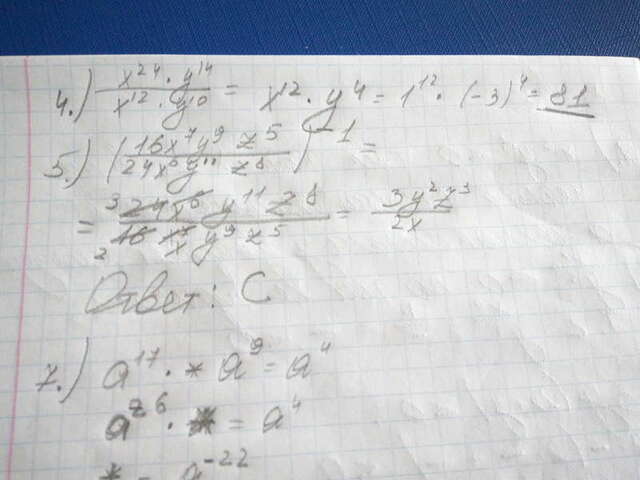 4.) x²⁴ · y¹⁴ / x¹² · y¹⁰ = x¹² · y⁴ = 1¹² · (-3)⁴ = 81
5.) (16x⁷y⁹ z⁵ / 24x⁶y¹¹ z⁸)⁻¹ =
= 3 24x⁶ y¹¹ z⁸ / 2 16 x⁷ x y⁹ z⁵ = 3y²z³ / 2x
Ответ: C
7.) a¹⁷ · * a⁹ = a⁴
a²⁶ · * = a⁴
* = a⁻²²